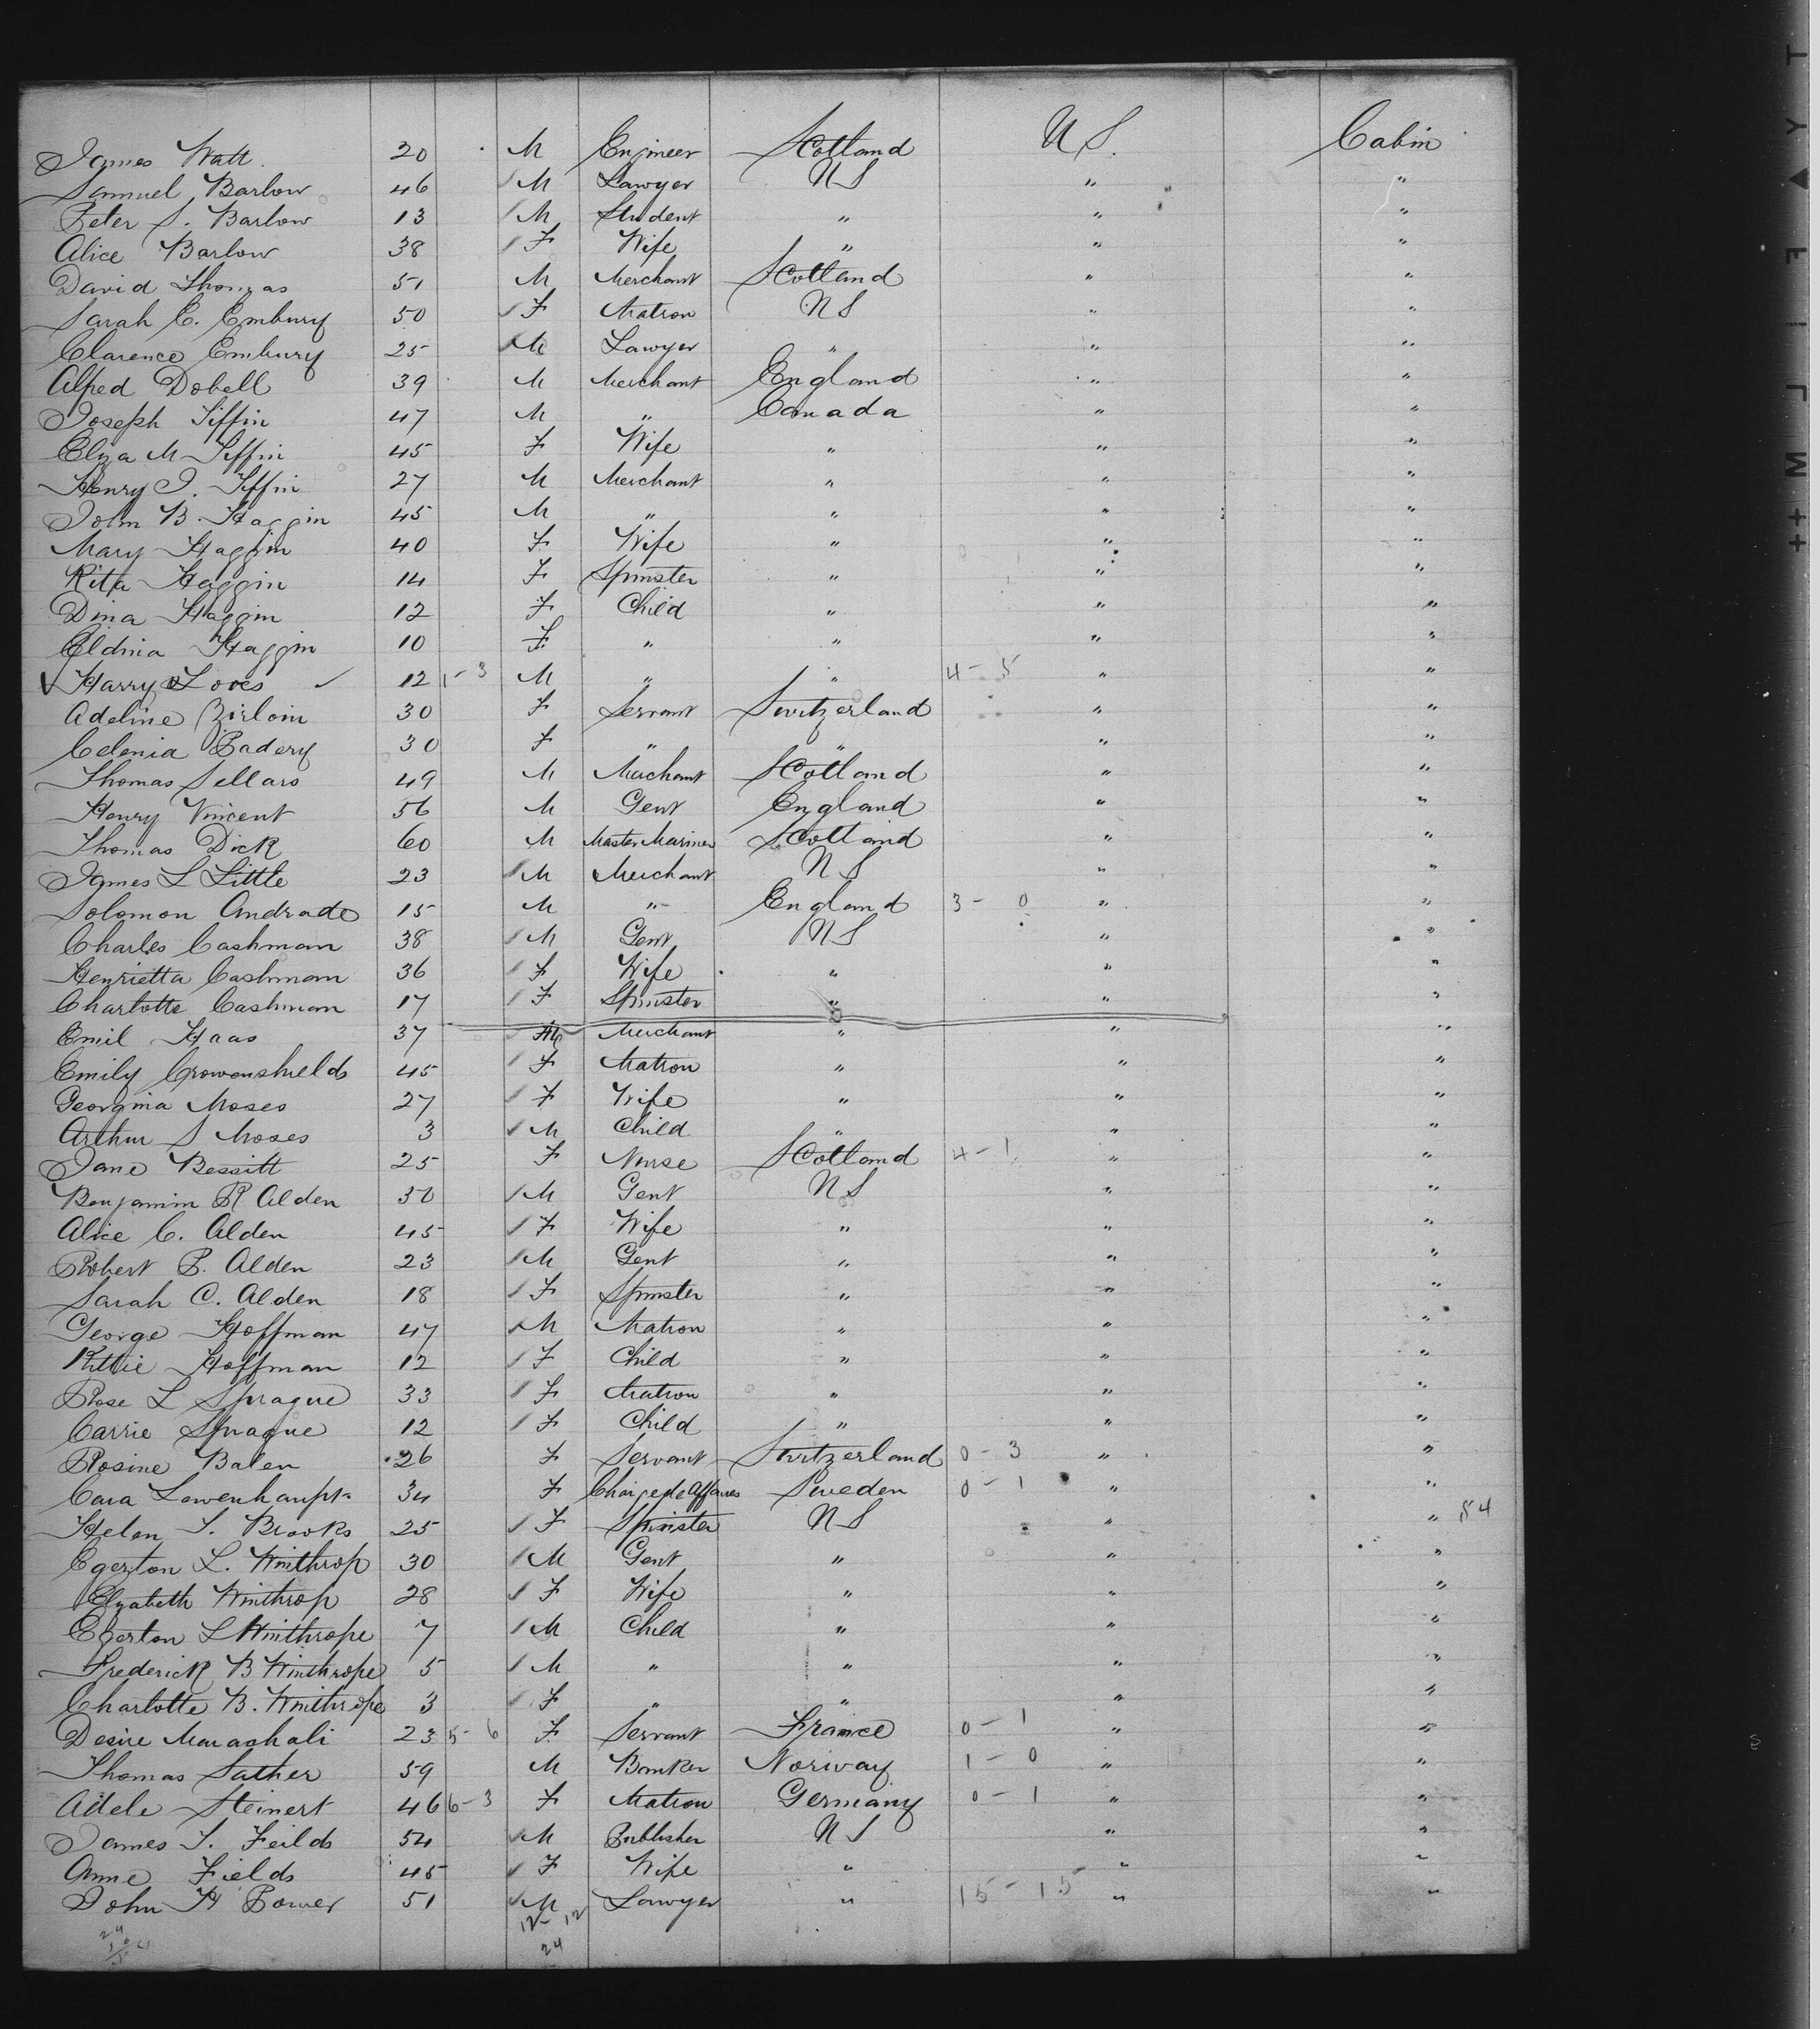 James Watt. 20 M Engineer Scotland U S. Cabin
Samuel Barlow 46 M Lawyer U S " "
Peter S. Barlow 13 M Student " " "
Alice Barlow 38 F Wife " " "
David Thomas 51 M Merchant Scotland " "
Sarah E. Embury 50 F Matron U S " "
Clarence Embury 25 M Lawyer " " "
Alfred Dobell 39 M Merchant England " "
Joseph Tiffin 47 M " Canada " "
Eliza M Tiffin 45 F Wife " " "
Henry J. Tiffin 27 M Merchant " " "
John B. Haggin 45 M " " " "
Mary Haggin 40 F Wife " " "
Rita Haggin 14 F Spinster " " "
Dina Haggin 12 F Child " " "
Eldina Haggin 10 F " " " "
Harry Loves 12 1-3 M " " 4-5 " "
Adeline 30 F Servant Switzerland " "
Celenia Badery 30 F " " " "
Thomas Sellars 49 M Merchant Scotland " "
Henry Vincent 56 M Gent England " "
Thomas Dick 60 M Master Mariner Scotland " "
James L Little 23 M Merchant U S " "
Solomon Andrade 15 M " England 3-0 " "
Charles Cashman 38 M Gent U S " "
Henrietta Cashman 36 F Wife " " "
Charlotte Cashman 17 F Spinster " " "
Emil Haas 37 M Merchant " " "
Emily Crowenshields 45 F Matron " " "
Georgina Moses 27 F Wife " " "
Arthur S Moses 3 M Child " " "
Jane Bessitt 25 F Nurse Scotland 4-1 " "
Benjamin R Alden 50 M Gent U S " "
Alice C. Alden 45 F Wife " " "
Robert P. Alden 23 M Gent " " "
Sarah C. Alden 18 F Spinster " " "
George Hoffman 47 M Matron " " "
Kittie Hoffman 12 F Child " " "
Rose L Sprague 33 F Matron " " "
Carrie Sprague 12 F Child " " "
Rosine Balen 26 F Servant Switzerland 0-3 " "
Cara Lewenhaupt 34 F Charge de Affaires Sweden 0-1 " "
Helen T. Brooks 25 F Spinster U S " " 54
Egerton L. Winthrop 30 M Gent " " "
Elizabeth Winthrop 28 F Wife " " "
Egerton L Winthrope 7 M Child " " "
Frederick B Winthrope 5 M " " " "
Charlotte B. Winthrope 3 F " " " "
Desire 23 5-6 F Servant France 0-1 " "
Thomas Sather 59 M Banker Norway 1-0 " "
Adele Steinert 46 6-3 F Matron Germany 0-1 " "
James T. Feilds 54 M Publisher U S " "
Anne Fields 45 F Wife " " "
John H Bower 51 M Lawyer " 15-15 " "
12-12
24